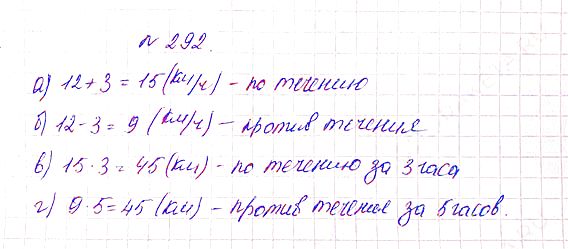 № 292.
а) 12 + 3 = 15 (км/ч) - по течению
б) 12 - 3 = 9 (км/ч) - против течения
в) 15 · 3 = 45 (км) - по течению за 3 часа
г) 9 · 5 = 45 (км) - против течения за 5 часов.